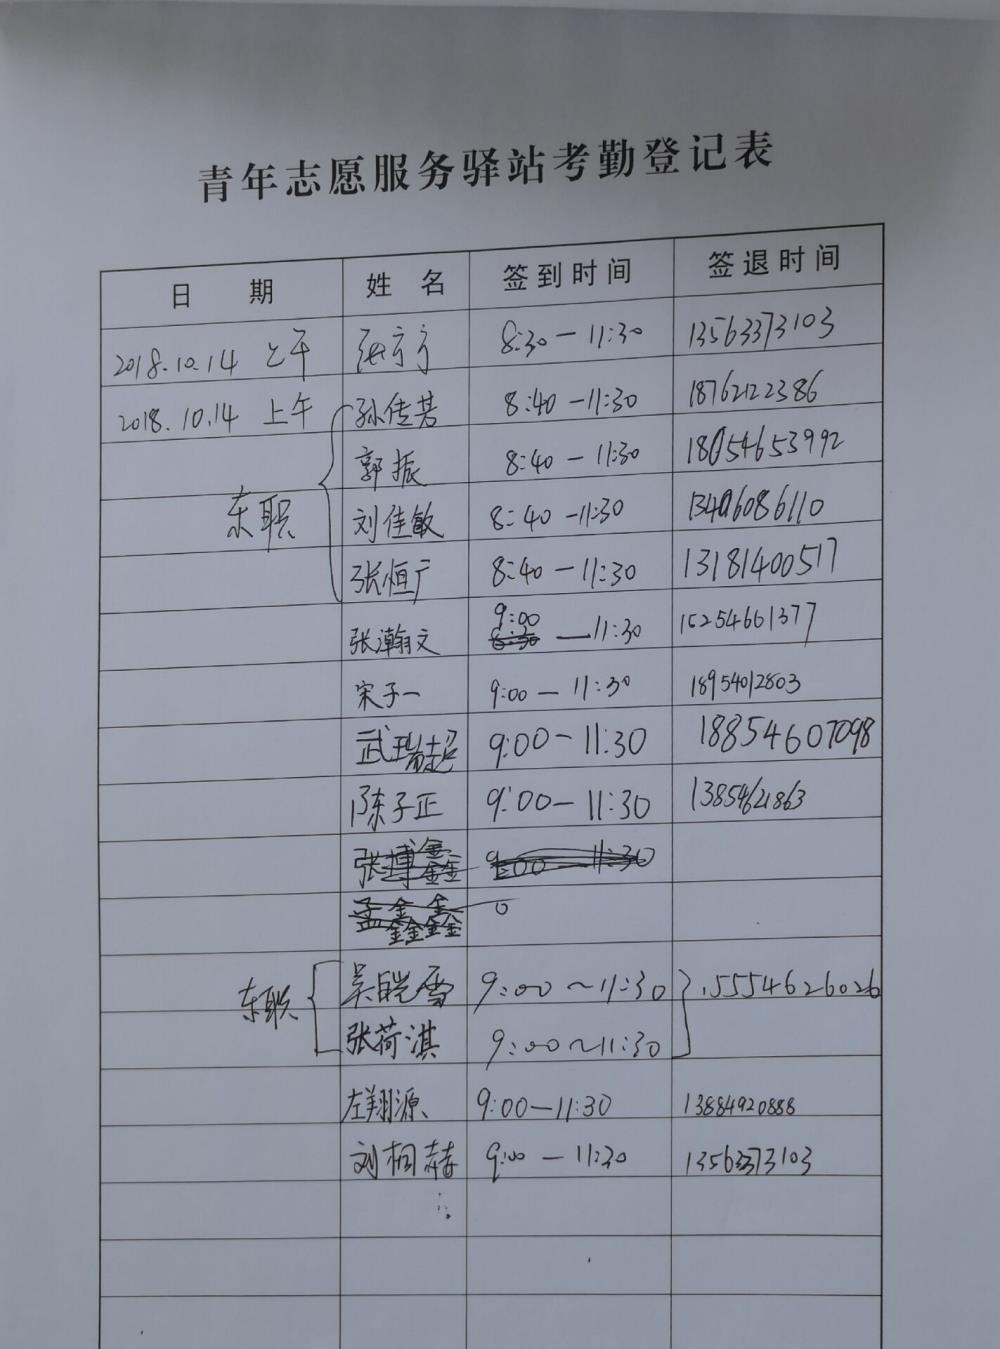 青年志愿服务驿站考勤登记表
日 期 姓 名 签到时间 签退时间
2018.10.14 上午 8:30-11:30 13563373103
2018.10.14 上午 孙佳芳 8:40-11:30 18762122386
郭振 8:40-11:30 18054653992
东职 刘佳敏 8:40-11:30 13406086110
张恒广 8:40-11:30 13181400517
张瀚文 9:00-11:30 15254661377
宋子一 9:00-11:30 18954012803
武瑞超 9:00-11:30 18854607098
陈子正 9:00-11:30 13854621863
张博鑫 9:00 11:30
东职 吴皑雪 9:00~11:30 15554626026
张荷淇 9:00~11:30
左翔源 9:00-11:30 13884920888
刘桐赫 9:00-11:30 13563373103